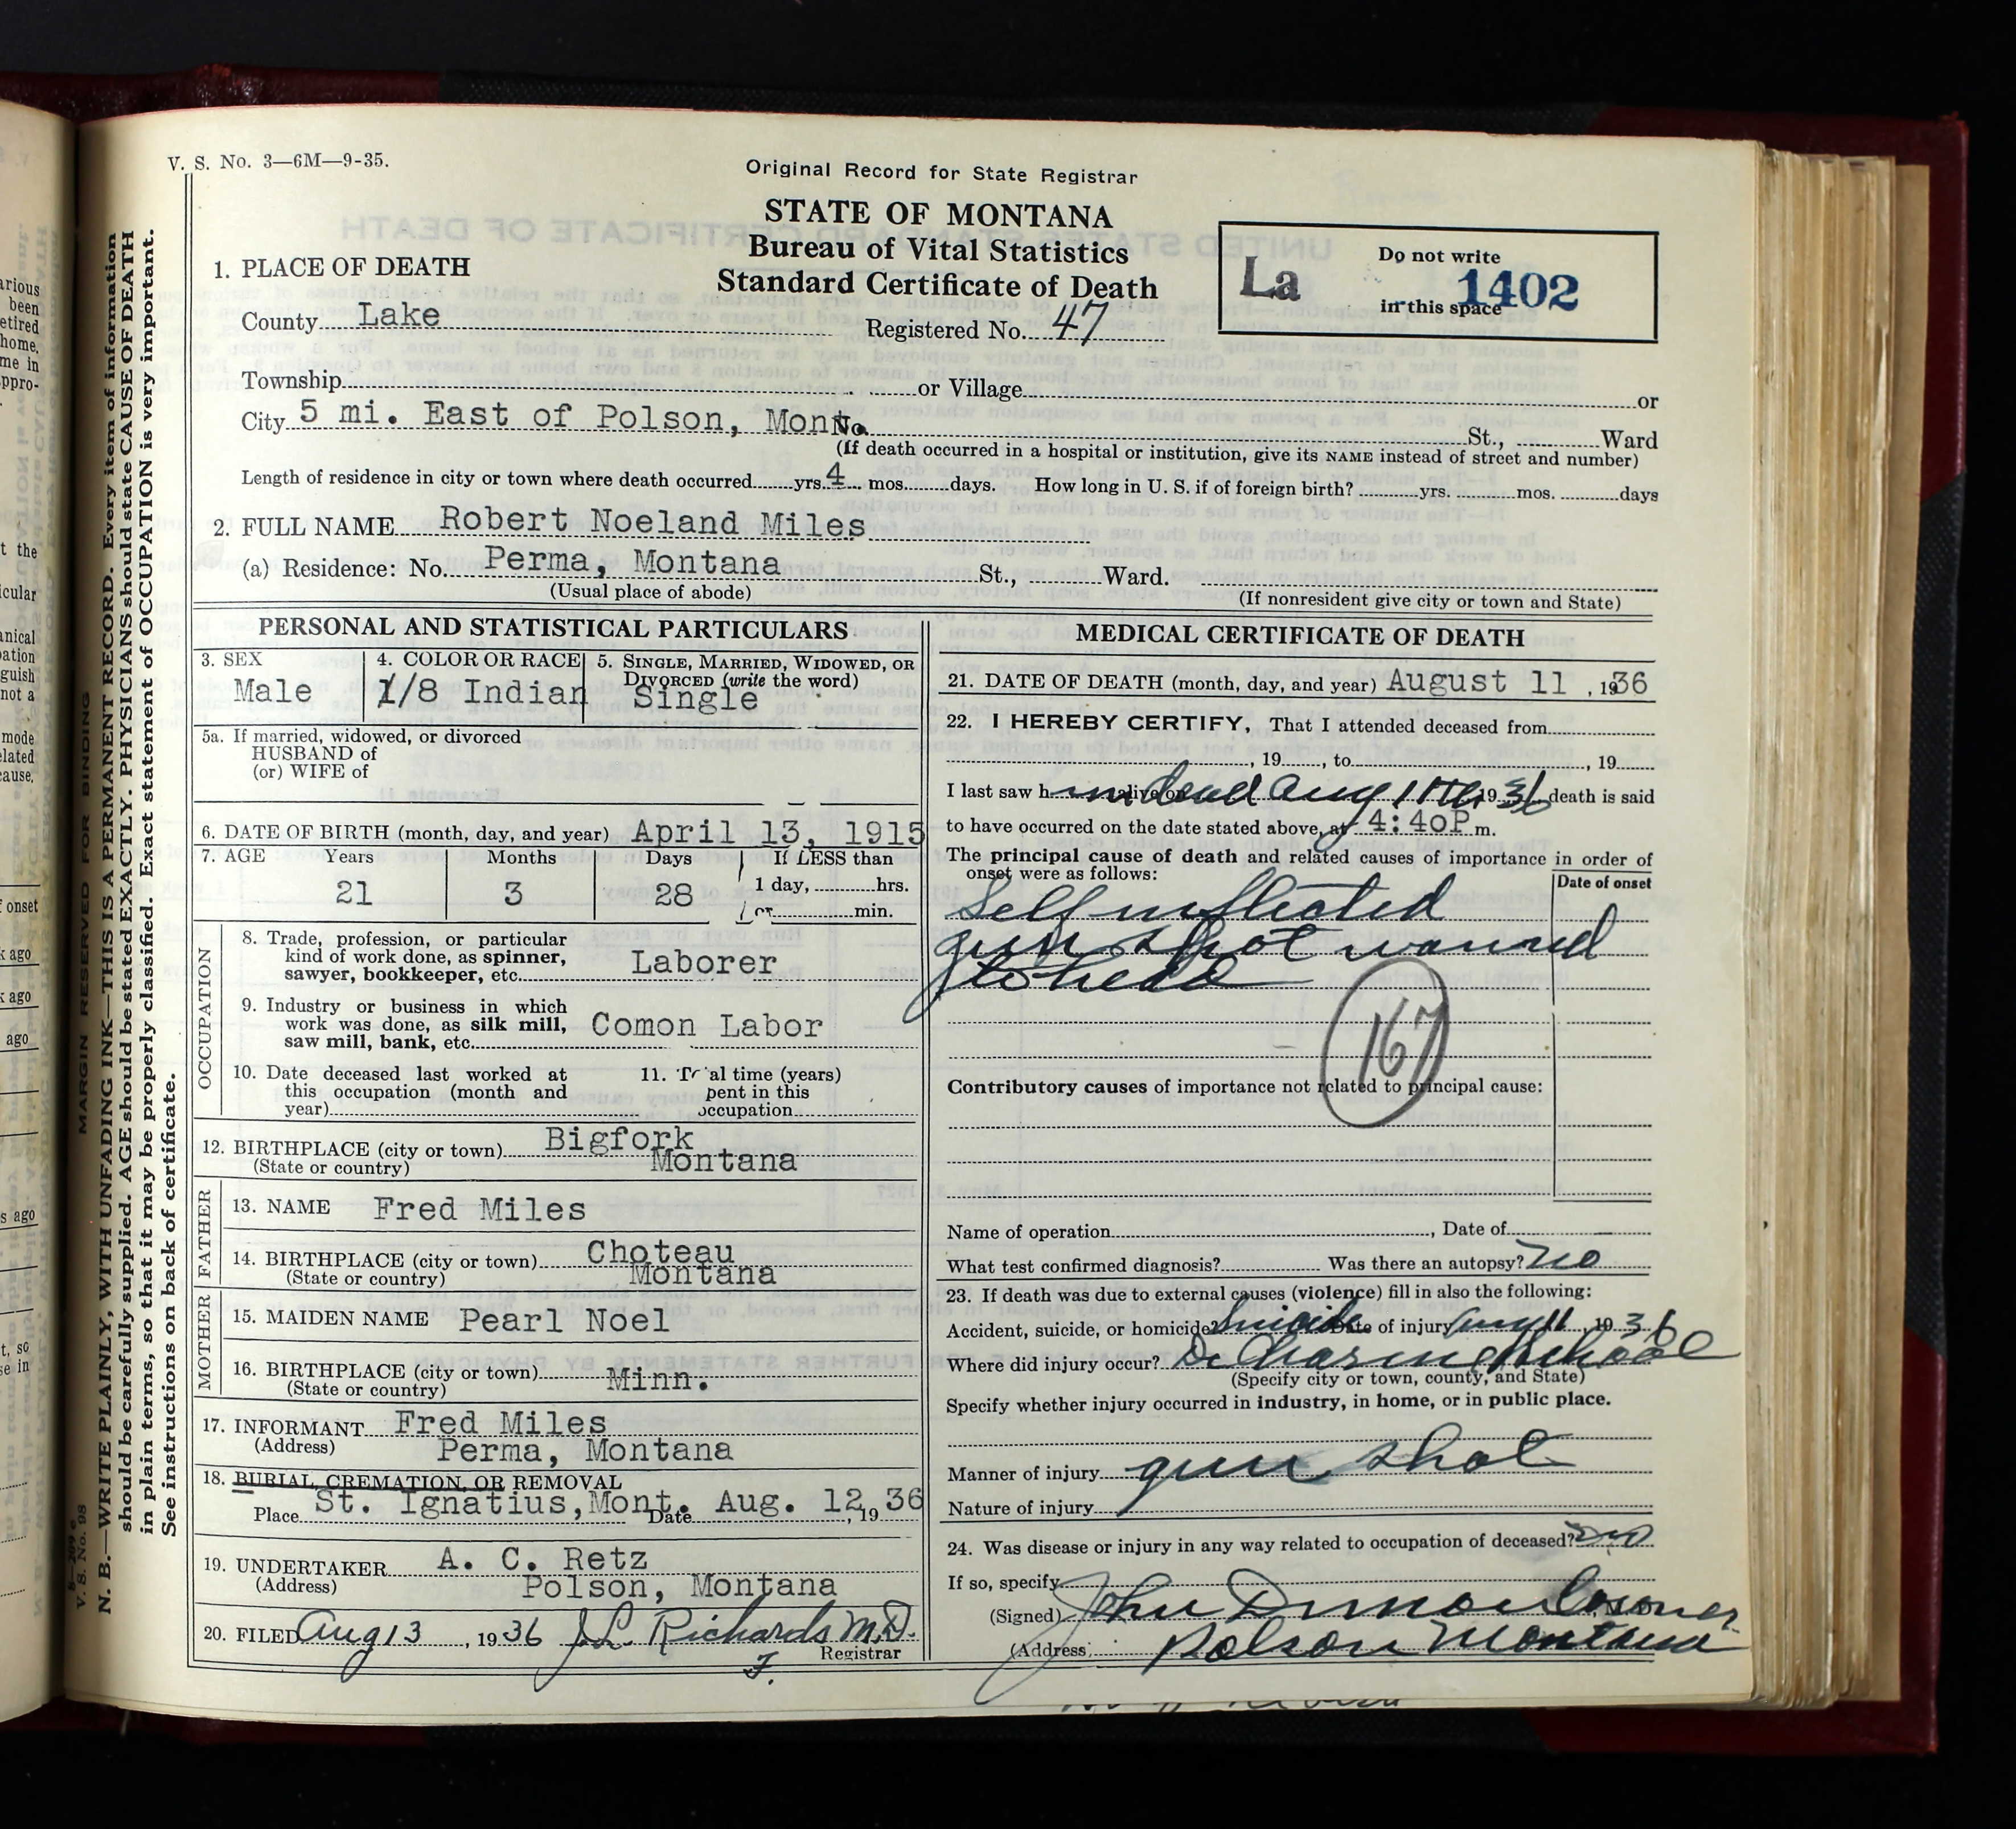 V. S. No. 3—6M—9-35.
Original Record for State Registrar
STATE OF MONTANA
Bureau of Vital Statistics
Standard Certificate of Death
La
Do not write
in this space
1402
1. PLACE OF DEATH
County Lake
Registered No. 47
Township or Village or
City 5 mi. East of Polson, Mont. No. St., Ward
(If death occurred in a hospital or institution, give its NAME instead of street and number)
Length of residence in city or town where death occurred yrs. 4 mos. days. How long in U. S. if of foreign birth? yrs. mos. days
2. FULL NAME Robert Noeland Miles
(a) Residence: No. Perma, Montana St., Ward.
(Usual place of abode) (If nonresident give city or town and State)
PERSONAL AND STATISTICAL PARTICULARS
3. SEX
Male
4. COLOR OR RACE
1/8 Indian
5. SINGLE, MARRIED, WIDOWED, OR
DIVORCED (write the word)
Single
5a. If married, widowed, or divorced
HUSBAND of
(or) WIFE of
6. DATE OF BIRTH (month, day, and year) April 13, 1915
7. AGE Years Months Days If LESS than
1 day, hrs.
or min.
21 3 28
OCCUPATION
8. Trade, profession, or particular
kind of work done, as spinner,
sawyer, bookkeeper, etc. Laborer
9. Industry or business in which
work was done, as silk mill,
saw mill, bank, etc. Comon Labor
10. Date deceased last worked at
this occupation (month and
year)
11. Total time (years)
spent in this
occupation
12. BIRTHPLACE (city or town) Bigfork
(State or country) Montana
FATHER
13. NAME Fred Miles
14. BIRTHPLACE (city or town) Choteau
(State or country) Montana
MOTHER
15. MAIDEN NAME Pearl Noel
16. BIRTHPLACE (city or town) Minn.
(State or country)
17. INFORMANT Fred Miles
(Address) Perma, Montana
18. BURIAL, CREMATION, OR REMOVAL
Place St. Ignatius, Mont. Date Aug. 12, 1936
19. UNDERTAKER A. C. Retz
(Address) Polson, Montana
20. FILED Aug 13, 1936 J.L. Richards M.D.
Registrar
MEDICAL CERTIFICATE OF DEATH
21. DATE OF DEATH (month, day, and year) August 11, 1936
22. I HEREBY CERTIFY, That I attended deceased from
, 19 , to , 19
I last saw him dead alive on Aug 11th 1936 death is said
to have occurred on the date stated above, at 4:40P m.
The principal cause of death and related causes of importance in order of
onset were as follows:
Date of onset
Self inflicted
gun shot wound
to head
167
Contributory causes of importance not related to principal cause:
Name of operation , Date of
What test confirmed diagnosis? Was there an autopsy? no
23. If death was due to external causes (violence) fill in also the following:
Accident, suicide, or homicide? Suicide Date of injury Aug 11, 1936
Where did injury occur? School
(Specify city or town, county, and State)
Specify whether injury occurred in industry, in home, or in public place.
Manner of injury gun shot
Nature of injury
24. Was disease or injury in any way related to occupation of deceased? no
If so, specify
(Signed) John Coroner
(Address) Polson Montana
MARGIN RESERVED FOR BINDING
N. B.—WRITE PLAINLY, WITH UNFADING INK—THIS IS A PERMANENT RECORD. Every item of information
should be carefully supplied. AGE should be stated EXACTLY. PHYSICIANS should state CAUSE OF DEATH
in plain terms, so that it may be properly classified. Exact statement of OCCUPATION is very important.
See instructions on back of certificate.
V. S. No. 98